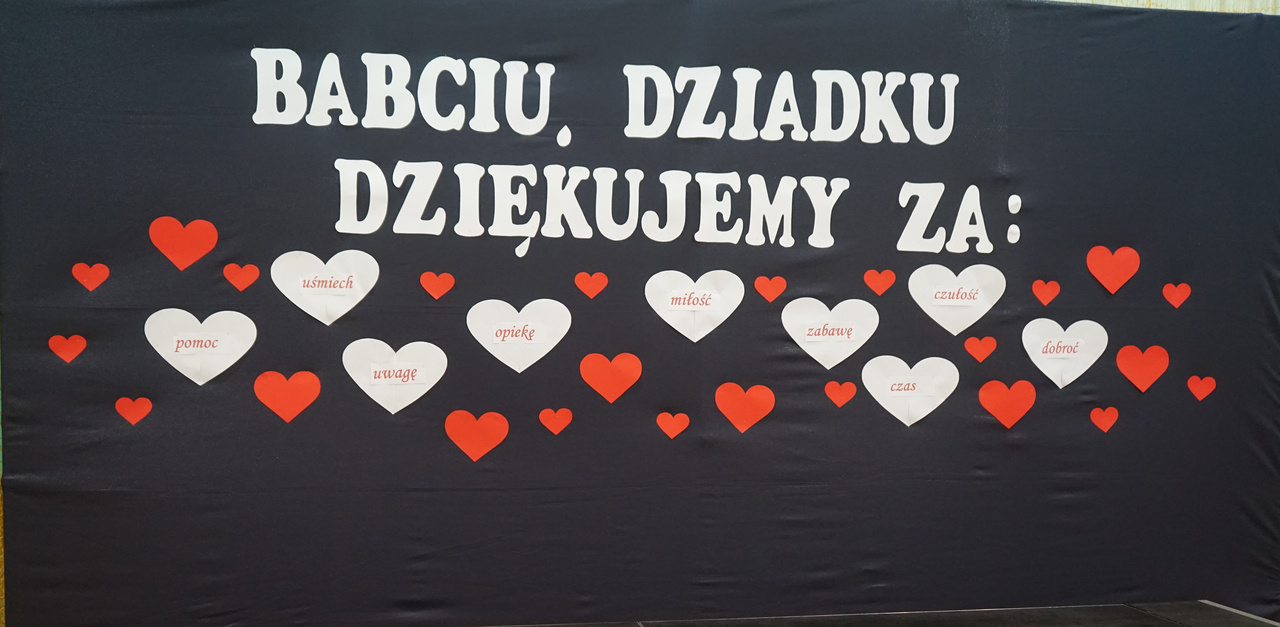 BABCIU, DZIADKU
DZIĘKUJEMY ZA:
pomoc
uśmiech
uwagę
opiekę
miłość
zabawę
czułość
czas
dobroć